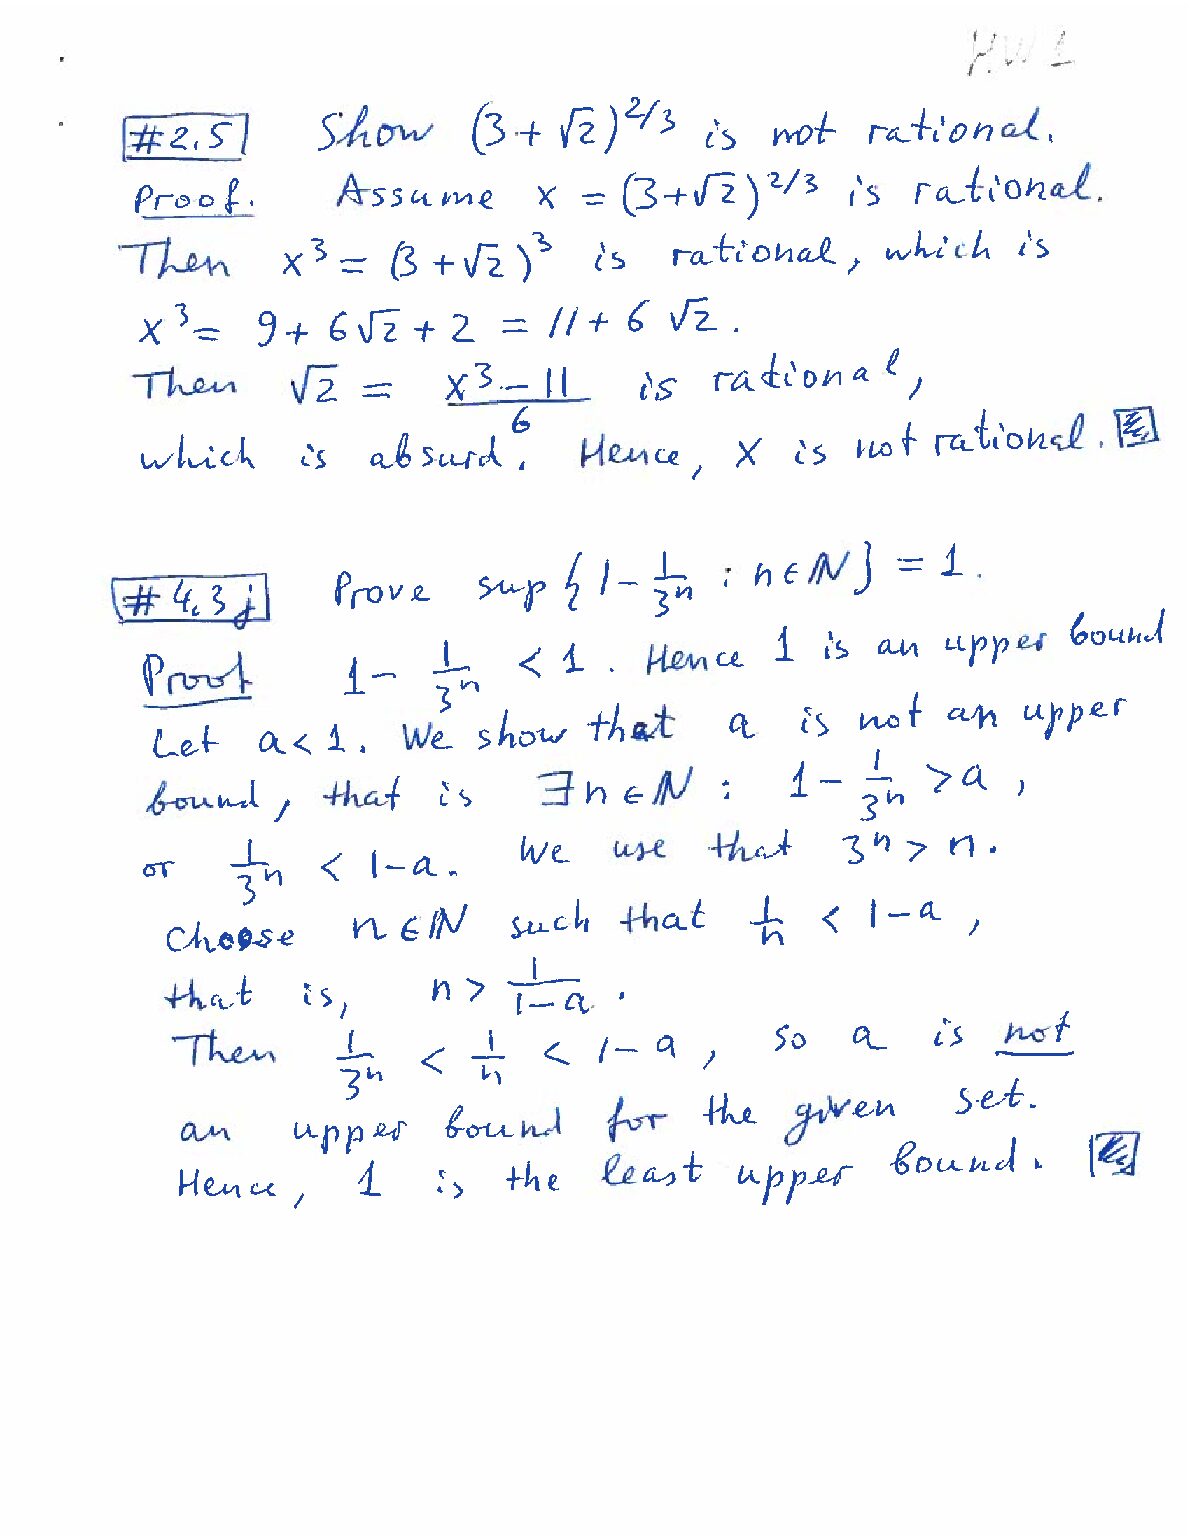 H.W 1
#2.5 Show (3+√2)^2/3 is not rational.
Proof. Assume x = (3+√2)^2/3 is rational.
Then x³ = (3+√2)³ is rational, which is
x³ = 9+ 6√2 + 2 = 11 + 6 √2.
Then √2 = (x³ - 11)/6 is rational,
which is absurd. Hence, x is not rational.
#4.3j Prove sup {1 - 1/3ⁿ : n ∈ ℕ} = 1.
Proof 1 - 1/3ⁿ < 1. Hence 1 is an upper bound
Let a < 1. We show that a is not an upper
bound, that is ∃n ∈ ℕ : 1 - 1/3ⁿ > a ,
or 1/3ⁿ < 1-a. We use that 3ⁿ > n.
Choose n ∈ ℕ such that 1/n < 1-a ,
that is, n > 1/(1-a) .
Then 1/3ⁿ < 1/n < 1-a , so a is not
an upper bound for the given set.
Hence, 1 is the least upper bound.